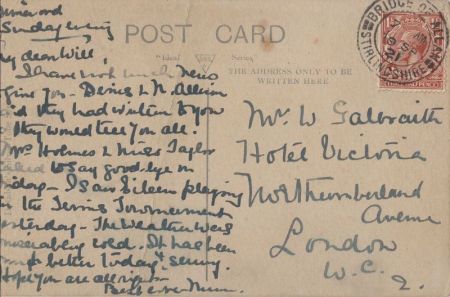 Sunday evening
My dear Will,
I have not much news
give you - Denis & N. Allison
said they had written to you
they would tell you all.
Mrs Holmes & Miss Taylor
called to say good-bye on
Friday - I saw Eileen playing
in the Tennis Tournament
yesterday - The weather was
miserably cold. It has been
better today & sunny.
Hope you are all right
Best love Mum.
POST CARD
"Ideal" Series
THE ADDRESS ONLY TO BE
WRITTEN HERE
BRIDGE OF ALLAN
STIRLINGSHIRE
SP
21
Mr W Galbraith
Hotel Victoria
Northumberland
Avenue
London
W.C.
2.